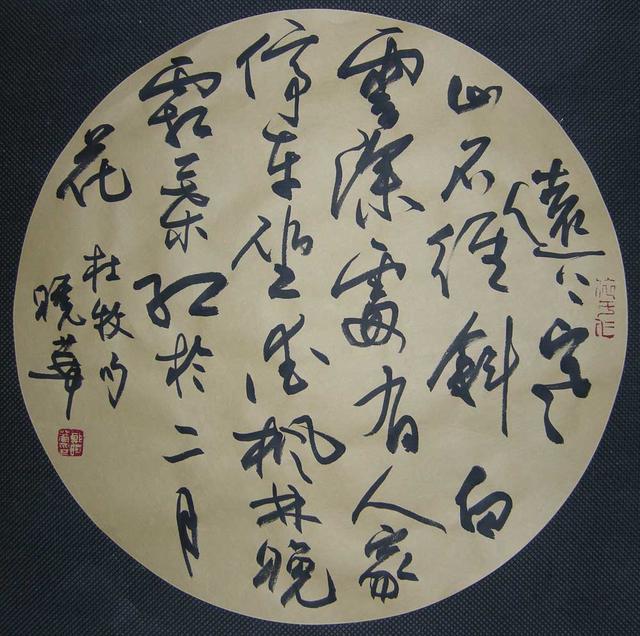 遠上寒
山石徑斜白
雲深處有人家
停車坐愛楓林晚
霜葉紅於二月
花
杜牧
曉華